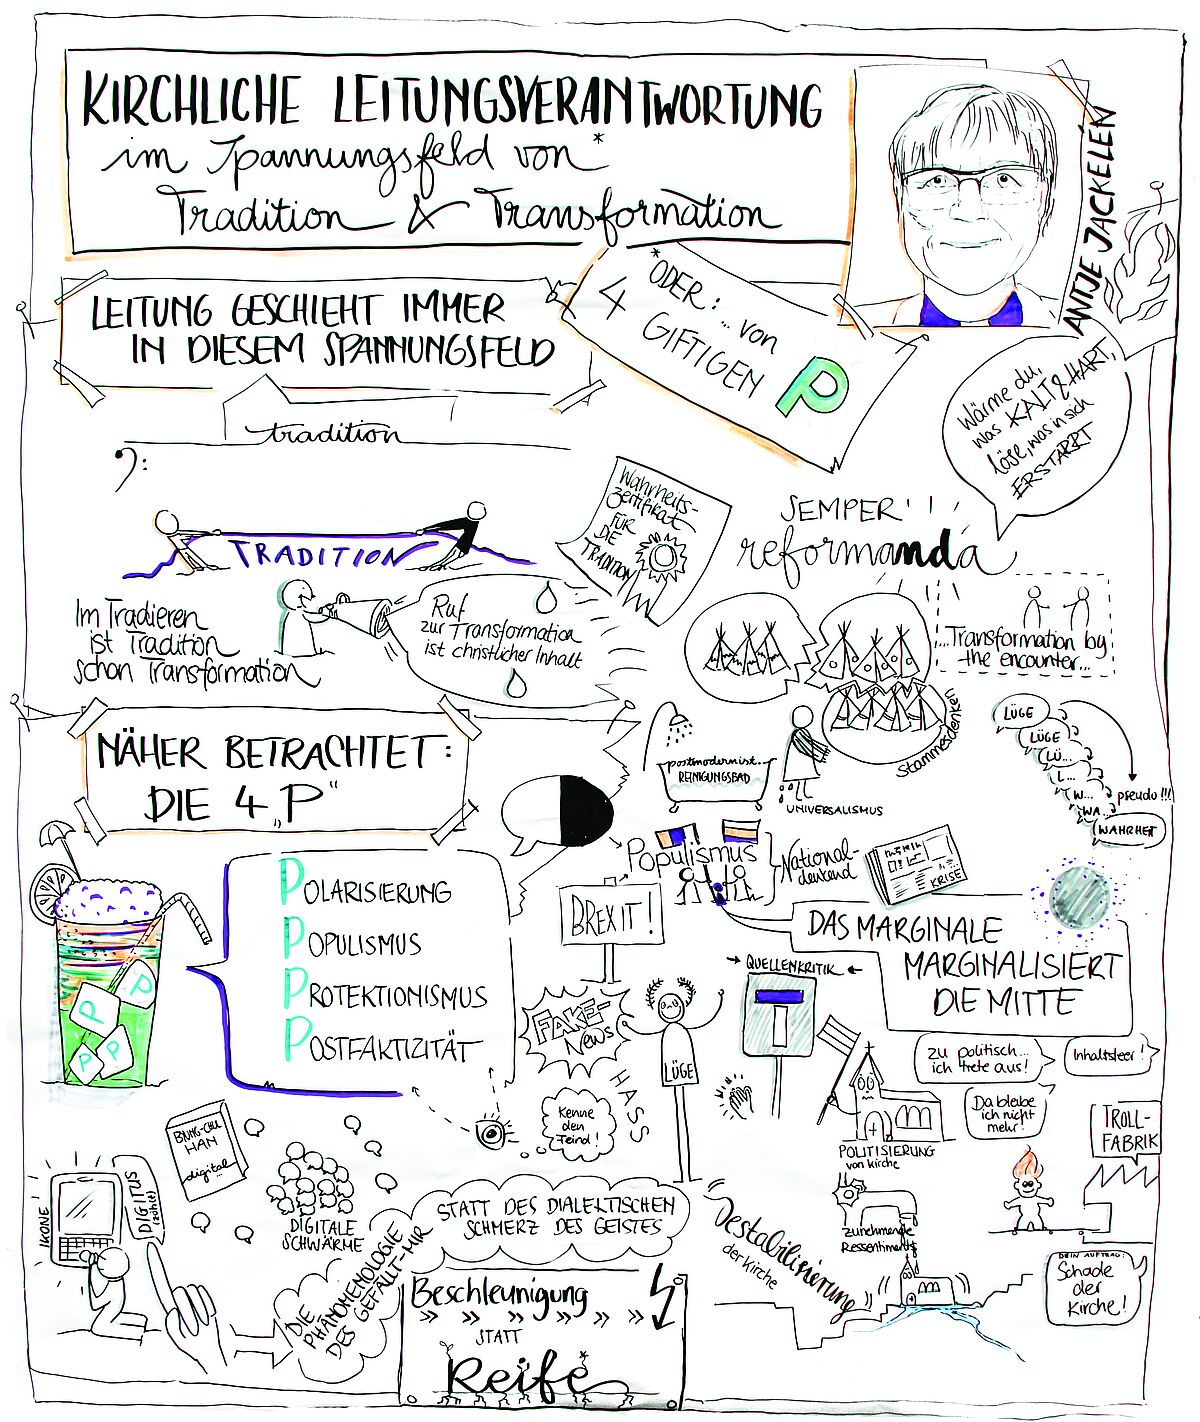 KIRCHLICHE LEITUNGSVERANTWORTUNG
im Spannungsfeld von *
Tradition & Transformation
ANTJE JACKELÉN
LEITUNG GESCHIEHT IMMER
IN DIESEM SPANNUNGSFELD
*ODER: ... von
4 GIFTIGEN P
Wärme du,
was KALT & HART,
löse, was in sich
ERSTARRT
tradition
TRADITION
Wahrheits-
zertifikat
FÜR
DIE
TRADITION
SEMPER
reformanda
Im Tradieren
ist Tradition
schon Transformation
Ruf
zur Transformation
ist christlicher Inhalt
...Transformation by
the encounter...
Stammesdenken
NÄHER BETRACHTET:
DIE 4 „P“
postmodernist.
REINIGUNGSBAD
UNIVERSALISMUS
LÜGE
LÜGE
LÜ...
L...
W...
WA...
WAHRHEIT
pseudo!!!
POLARISIERUNG
POPULISMUS
PROTEKTIONISMUS
POSTFAKTIZITÄT
P
P
P
P
Populismus
National-
denkend
KRISE
BREXIT!
DAS MARGINALE
MARGINALISIERT
DIE MITTE
→ QUELLENKRITIK ←
FAKE-
News
LÜGE
HASS
Kenne
den
Feind!
zu politisch...
ich trete aus!
Inhaltsleer!
Da bleibe
ich nicht
mehr!
POLITISIERUNG
von Kirche
TROLL-
FABRIK
BYUNG-CHUL
HAN
digital...
IKONE
DIGITUS
(zählt)
DIGITALE
SCHWÄRME
STATT DES DIALEKTISCHEN
SCHMERZ DES GEISTES
DIE
PHÄNOMENOLOGIE
DES GEFÄLLT-MIR
Destabilisierung
der Kirche
zunehmende
Ressentiments
DEIN AUFTRAG:
Schade
der
Kirche!
Beschleunigung
» » » » » »
STATT
Reife